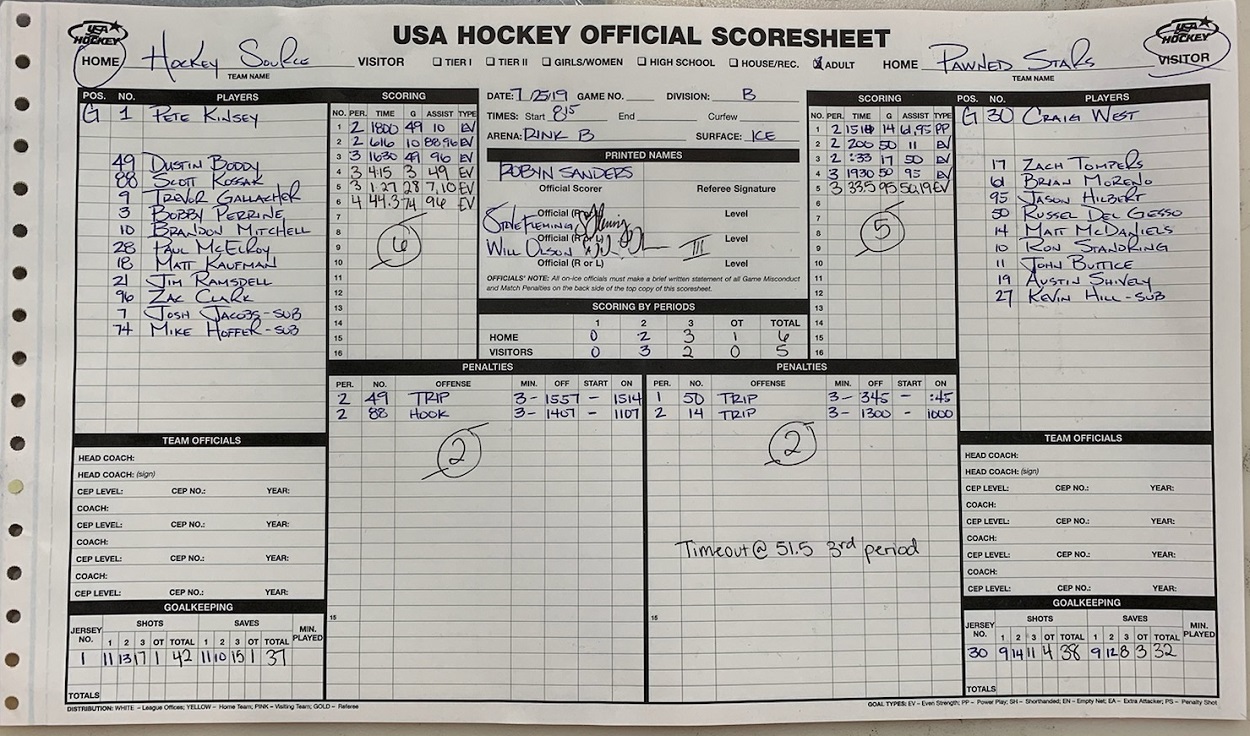 USA HOCKEY OFFICIAL SCORESHEET
USA HOCKEY
HOME Hockey Source VISITOR
TEAM NAME
☐ TIER I ☐ TIER II ☐ GIRLS/WOMEN ☐ HIGH SCHOOL ☐ HOUSE/REC. ☑ ADULT
HOME PAWNED STARS VISITOR
TEAM NAME
USA HOCKEY
POS. NO. PLAYERS
G 1 PETE KINSEY
49 DUSTIN BODDY
88 SCOTT KOSAK
9 TREVOR GALLACHER
3 BOBBY PERRINE
10 BRANDON MITCHELL
28 PAUL McELROY
18 MATT KAUFMAN
21 JIM RAMSDELL
96 ZAC CLARK
7 JOSH JACOBS - SUB
74 MIKE HOFFER - SUB
SCORING
NO. PER. TIME G ASSIST TYPE
1 2 1800 49 10 EV
2 2 616 10 88,96 EV
3 3 1630 49 96 EV
4 3 415 3 49 EV
5 3 1:27 28 7,10 EV
6 4 44.3 74 96 EV
7
8
9
10
11
12
13
14
15
16
6
DATE: 7/25/19 GAME NO. DIVISION: B
TIMES: Start 8:15 End Curfew
ARENA: RINK B SURFACE: ICE
PRINTED NAMES
ROBYN SANDERS
Official Scorer Referee Signature
STEVE FLEMING Official (R or L) Level
WILL OLSON Official (R or L) III Level
Official (R or L) Level
OFFICIALS' NOTE: All on-ice officials must make a brief written statement of all Game Misconduct
and Match Penalties on the back side of the top copy of this scoresheet.
SCORING BY PERIODS
1 2 3 OT TOTAL
HOME 0 2 3 1 6
VISITORS 0 3 2 0 5
SCORING
NO. PER. TIME G ASSIST TYPE
1 2 1514 14 61,95 PP
2 2 200 50 11 EV
3 2 :33 17 50 EV
4 3 1930 50 95 EV
5 3 335 95 50,19 EV
6
7
8
9
10
11
12
13
14
15
16
5
POS. NO. PLAYERS
G 30 CRAIG WEST
17 ZACH TOMPERS
61 BRIAN MORENO
95 JASON HILBERT
50 RUSSEL DEL GESSO
14 MATT McDANIELS
10 RON STANDRING
11 JOHN BUTTICE
19 AUSTIN SHIVELY
27 KEVIN HILL - SUB
PENALTIES
PER. NO. OFFENSE MIN. OFF START ON
2 49 TRIP 3- 1557 - 1514
2 88 HOOK 3- 1407 - 1107
2
15
PENALTIES
PER. NO. OFFENSE MIN. OFF START ON
1 50 TRIP 3- 345 - :45
2 14 TRIP 3- 1300 - 1000
2
Timeout @ 51.5 3rd period
15
TEAM OFFICIALS
HEAD COACH:
HEAD COACH: (sign)
CEP LEVEL: CEP NO.: YEAR:
COACH:
CEP LEVEL: CEP NO.: YEAR:
COACH:
CEP LEVEL: CEP NO.: YEAR:
COACH:
CEP LEVEL: CEP NO.: YEAR:
GOALKEEPING
JERSEY NO. SHOTS SAVES MIN. PLAYED
1 2 3 OT TOTAL 1 2 3 OT TOTAL
1 11 13 17 1 42 11 10 15 1 37
TOTALS
TEAM OFFICIALS
HEAD COACH:
HEAD COACH: (sign)
CEP LEVEL: CEP NO.: YEAR:
COACH:
CEP LEVEL: CEP NO.: YEAR:
COACH:
CEP LEVEL: CEP NO.: YEAR:
COACH:
CEP LEVEL: CEP NO.: YEAR:
GOALKEEPING
JERSEY NO. SHOTS SAVES MIN. PLAYED
1 2 3 OT TOTAL 1 2 3 OT TOTAL
30 9 14 11 4 38 9 12 8 3 32
TOTALS
DISTRIBUTION: WHITE – League Offices; YELLOW – Home Team; PINK – Visiting Team; GOLD – Referee
GOAL TYPES: EV – Even Strength; PP – Power Play; SH – Shorthanded; EN – Empty Net; EA – Extra Attacker; PS – Penalty Shot